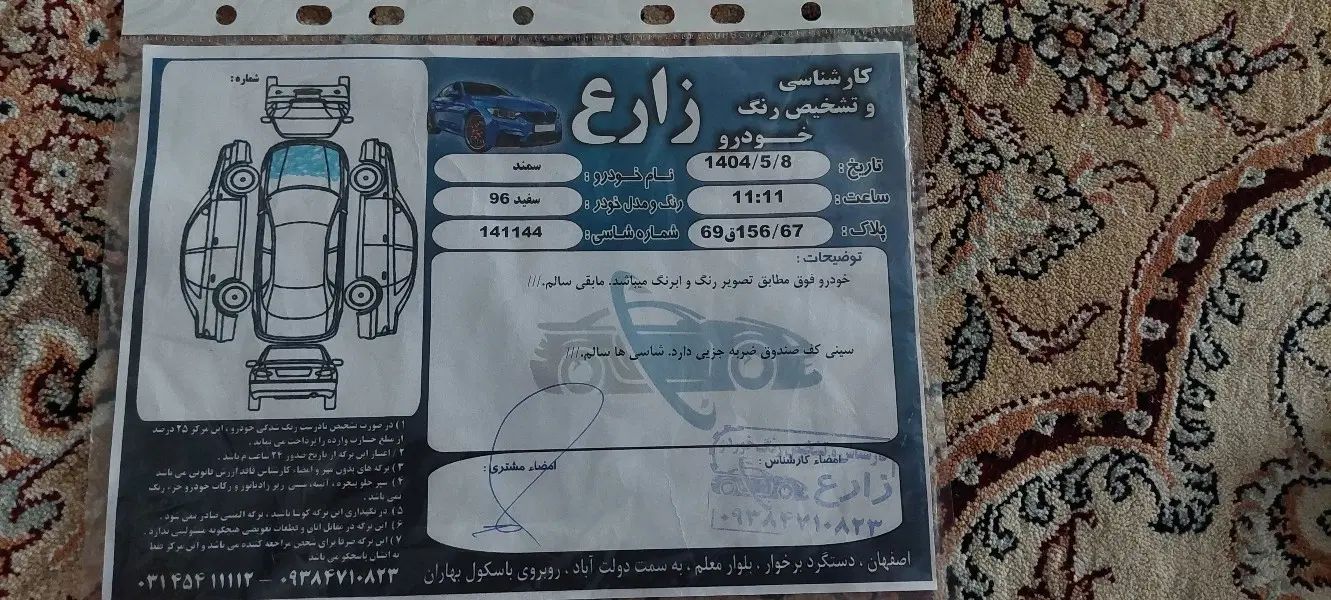 کارشناسی
و تشخیص رنگ
خودرو
زارع
شماره :
تاریخ : 1404/5/8
نام خودرو : سمند
ساعت : 11:11
رنگ و مدل خودر : سفید 96
پلاک : 69ق156/67
شماره شاسی : 141144
توضیحات :
خودرو فوق مطابق تصویر رنگ و ابرنگ میباشد. مابقی سالم.///
سینی کف صندوق ضربه جزیی دارد. شاسی ها سالم.///
امضاء کارشناس :
امضاء مشتری :
زارع
۰۹۳۸۴۷۱۰۸۲۳
۱ ) در صورت تشخیص نادرست رنگ شدگی خودرو ، این مرکز ۲۵ درصد
از مبلغ خسارت وارده را پرداخت می نماید .
۲ ) اعتبار این برگه از تاریخ صدور ۲۴ ساعت م باشد .
۳ ) برگه های بدون مهر و امضاء کارشناس فاقد ارزش قانونی می باشد
۴ ) سپر جلو پنجره ، آئینه، سینی زیر رادیاتور و رکاب خودرو جزء رنگ
نمی باشد .
۵ ) در نگهداری این برگه کوشا باشید ، برگه المثنی صادر نمی شود .
۶ ) این برگه در مقابل اتاق و قطعات تعویضی هیچگونه مسئولیتی ندارد .
۷ ) این برگه صرفا برای شخص مراجعه کننده می باشد و این مرکز فقط
به ایشان پاسخگو می باشد
۰۳۱ ۴۵۴ ۱۱۱۱۲ – ۰۹۳۸۴۷۱۰۸۲۳
اصفهان ، دستگرد برخوار ، بلوار معلم ، به سمت دولت آباد ، روبروی باسکول بهاران